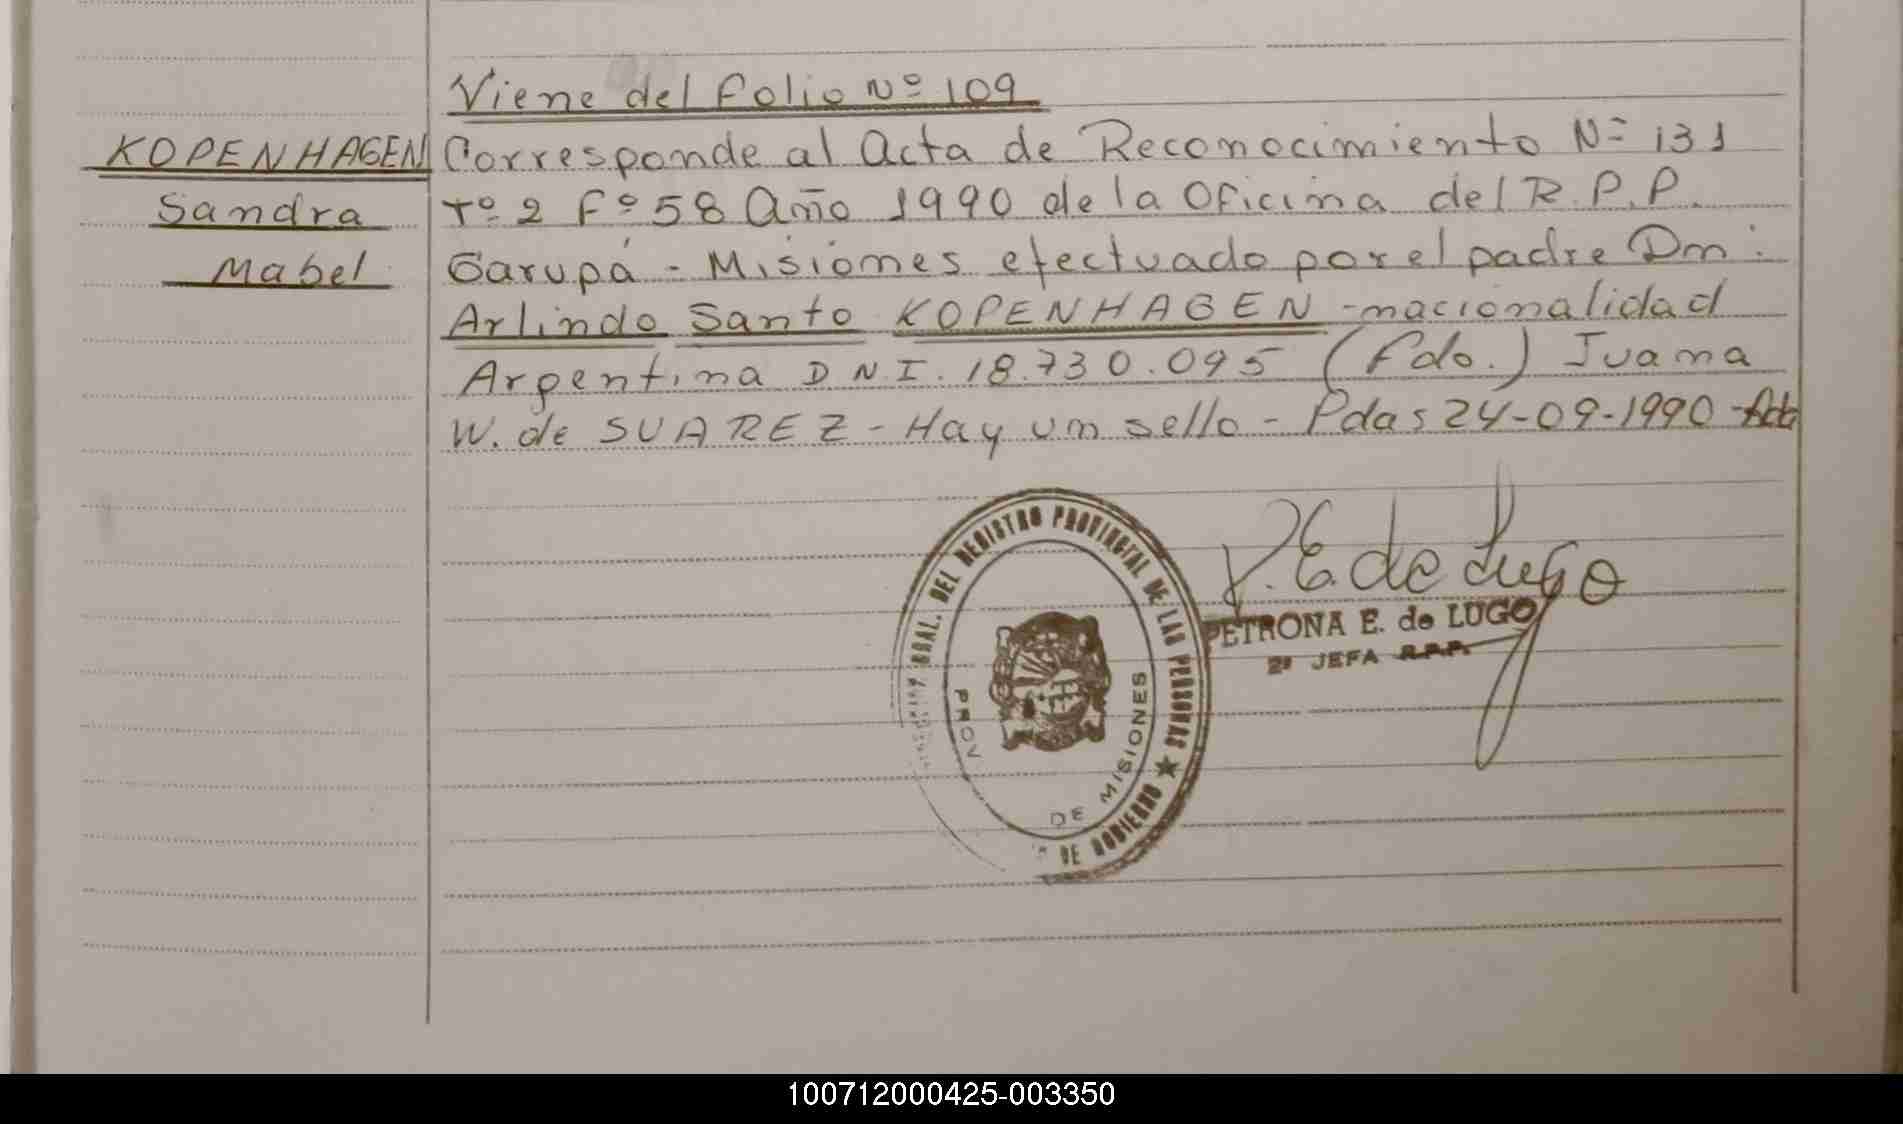 Viene del folio Nº 109
KOPENHAGEN
Sandra
Mabel
Corresponde al Acta de Reconocimiento Nº 131
Tº 2 Fº 58 Año 1990 de la Oficina del R.P.P.
Garupá - Misiones efectuado por el padre Dn:
Arlindo Santo KOPENHAGEN - nacionalidad
Argentina DNI. 18.730.095 (Fdo.) Juana
W. de SUAREZ - Hay un sello - Pdas 24-09-1990 -
GRAL. DEL REGISTRO PROVINCIAL DE LAS PERSONAS ★
DE GOBIERNO
PROV DE MISIONES
P. E. de Lugo
PETRONA E. de LUGO
2ª JEFA R.P.P.
100712000425-003350